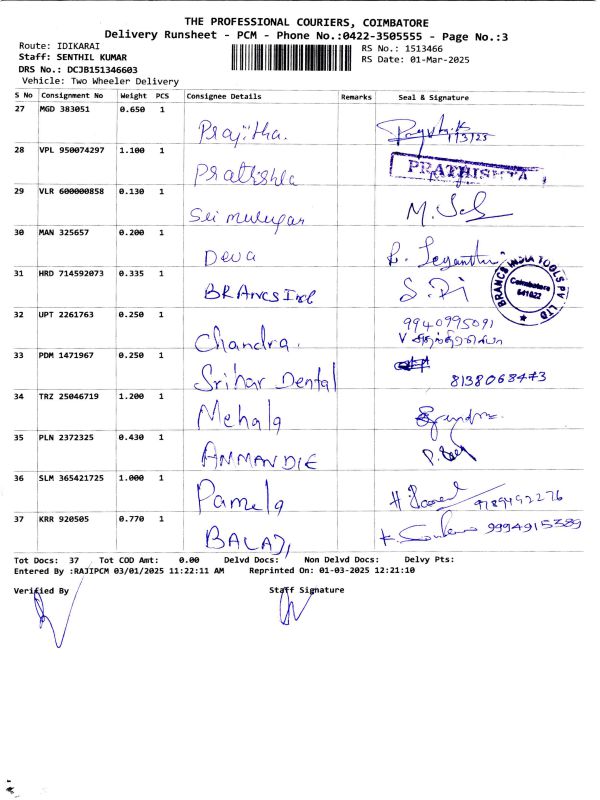 THE PROFESSIONAL COURIERS, COIMBATORE
Delivery Runsheet - PCM - Phone No.:0422-3505555 - Page No.:3
Route: IDIKARAI
RS No.: 1513466
Staff: SENTHIL KUMAR
RS Date: 01-Mar-2025
DRS No.: DCJB151346603
Vehicle: Two Wheeler Delivery
S No Consignment No Weight PCS Consignee Details Remarks Seal & Signature
27 MGD 383051 0.650 1 Prajitha. 1/3/25
28 VPL 950074297 1.100 1 Prathishta PRATHISHTA
29 VLR 600000858 0.130 1 Sri murugan
30 MAN 325657 0.200 1 Deva
31 HRD 714592073 0.335 1 BRANCS Ind BRANCS INDIA TOOLS PVT LTD Coimbatore 641022
32 UPT 2261763 0.250 1 Chandra. 9940995091
33 PDM 1471967 0.250 1 Srihar Dental 8138068443
34 TRZ 25046719 1.200 1 Mehala
35 PLN 2372325 0.430 1 ANMANDIE
36 SLM 365421725 1.000 1 Pamela 9789492276
37 KRR 920505 0.770 1 BALAJI 9994915389
Tot Docs: 37 Tot COD Amt: 0.00 Delvd Docs: Non Delvd Docs: Delvy Pts:
Entered By :RAJIPCM 03/01/2025 11:22:11 AM Reprinted On: 01-03-2025 12:21:10
Verified By Staff Signature